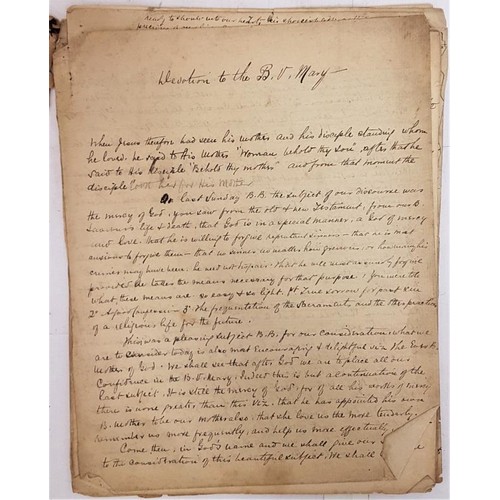 ready to shower into our hearts his choicest
Devotion to the B. V. Mary
When Jesus therefore had seen his mother and his disciple standing whom
he loved. he said to His Mother "Woman behold thy son", after that he
said to His disciple "Behold thy mother" and from that moment the
disciple took her for His Mother
On last Sunday B.B. the subject of our discourse was
the mercy of God, you saw from the old & new Testament, from our B.
Saviour's life & death, that God is in a special manner, a God of mercy
and love. That he is willing to forgive repentant sinners - that he is most
anxious to forgive them - that no sinner, no matter how grievous, or how many his
crimes may have been, he need not despair. That he will most assuredly forgive
provided he takes the means necessary for that purpose. You were told
what these means are so easy & so light. 1st True sorrow for past sin
2d A pure Confession 3d The frequentation of the Sacraments and the practice
of a religious life for the future.
This was a pleasing subject B.B. for our consideration; what we
are to consider today is also most encouraging & delightful viz the
Mother of God. We shall see that after God we are to place all our
Confidence in the B. V. Mary. Indeed this is but a continuation of the
last subject. It is still the mercy of God, for of all his works of mercy
there is none greater than this viz. that he has appointed his own
B. Mother to be our Mother also, that she love us the most tenderly,
remember us more frequently, and help us more effectively
Come then, in God's name and we shall give our
to the consideration of this beautiful subject. We shall